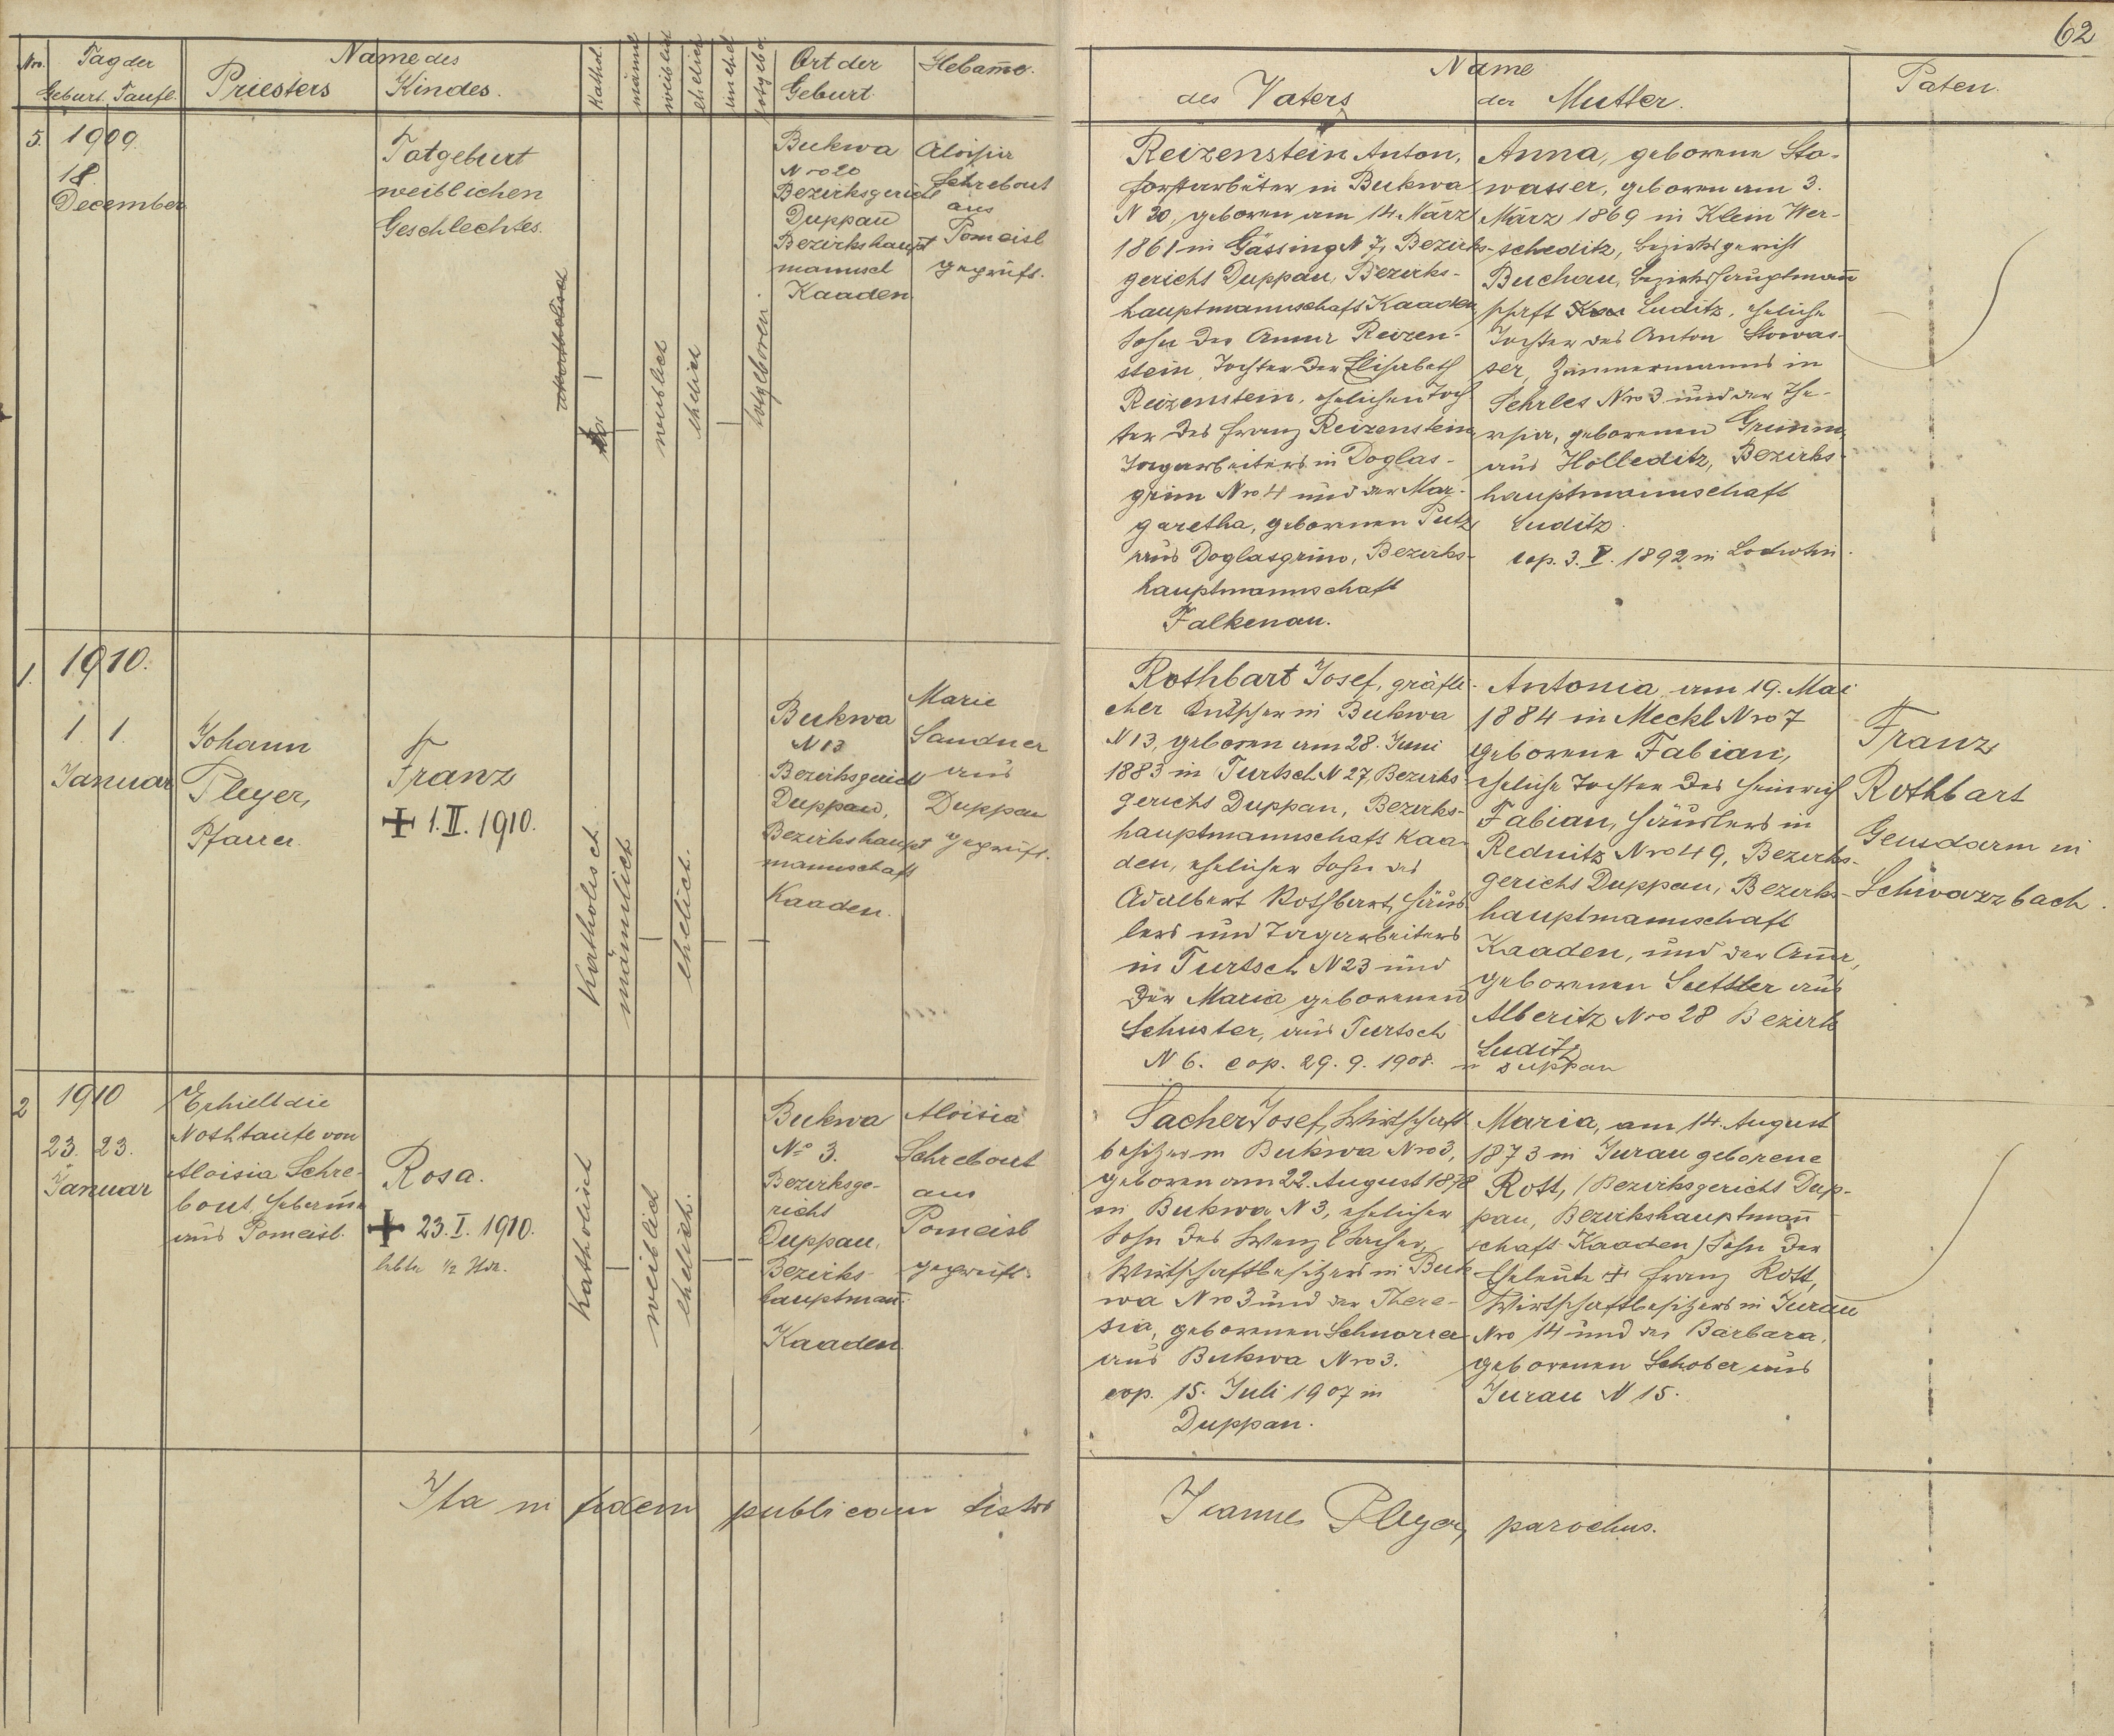 62
Nro.
Tag der
Geburt. Taufe.
Name des
Priesters
Kindes.
Kathol.
männl
weiblich
ehelich
unehel
totgebo.
Ort der
Geburt.
Hebam̅e.
Name
des Vaters
der Mutter.
Paten.
5.
1909.
18
December
Totgeburt
weiblichen
Geschlechtes.
weiblich
ehelich
totgeboren.
Bukwa
Nro 20
Bezirksgericht
Duppau
Bezirkshaupt
mannsch
Kaaden.
Aloisia
Schrebout
aus
Pomeisl
geprüft.
Reizenstein Anton,
Forstarbeiter in Bukwa
N 20, geboren am 14. März
1861 in Gässing N 7, Bezirks-
gerichts Duppau, Bezirks-
hauptmannschaft Kaaden,
Sohn der Anna Reizen-
stein, Tochter der Elisabeth
Reizenstein, ehelichen Toch
ter des Franz Reizenstein,
Tagarbeiters in Doglas-
grün Nro 4 und der Mar-
garetha, geborenen Putz
aus Doglasgrün, Bezirks-
hauptmannschaft
Falkenau.
Anna, geborene Sto-
wasser, geboren am 3.
März 1869 in Klein Wer-
scheditz, Bezirksgericht
Buchau, Bezirkshauptman̅
schaft Luditz, eheliche
Tochter des Anton Stowas-
ser, Zimmermanns in
Sehrles Nro 3 und der The-
resia, geborenen Grimm,
aus Holleditz, Bezirks-
hauptmannschaft
Luditz.
cop. 3. V. 1892 in
1.
1910.
1. 1.
Januar
Johann
Pleyer,
Pfarrer.
Franz
+ 1. II. 1910.
Katholisch
männlich
ehelich.
Bukwa
N 13
Bezirksgericht
Duppau,
Bezirkshaupt
mannschaft
Kaaden.
Marie
Sandner
aus
Duppau
geprüft.
Rothbart Josef, gräfli-
cher Kutscher in Bukwa
N 13, geboren am 28. Juni
1883 in Turtsch N 27, Bezirks-
gerichts Duppau, Bezirks-
hauptmannschaft Kaa-
den, ehelicher Sohn des
Adalbert Rothbart, Häus
lers und Tagarbeiters
in Turtsch N 23 und
der Maria geborenen
Schuster, aus Turtsch
N 6. cop. 29. 9. 1908. in Duppau
Antonia am 19. Mai
1884 in Meckl Nro 7
geborene Fabian,
eheliche Tochter des Heinrich
Fabian, Häuslers in
Rednitz Nro 49, Bezirks-
gerichts Duppau, Bezirks-
hauptmannschaft
Kaaden, und der Anna,
geborenen Sattler aus
Alberitz Nro 28 Bezirk
Luditz
Franz
Rothbart
Gendarm in
Schwarzbach.
2
1910
23. 23.
Januar
Erhielt die
Nothtaufe von
Aloisia Schre-
bout, Hebam̅e
aus Pomeisl.
Rosa.
+ 23. I. 1910.
lebte ½ Stde.
Katholisch
weiblich
ehelich.
Bukwa
No 3.
Bezirksge-
richt
Duppau,
Bezirks-
hauptman̅.
Kaaden.
Aloisia
Schrebout
aus
Pomeisl
geprüft.
Sacher Josef, Wirtschafts
besitzer in Bukwa Nro 3,
geboren am 22. August 1878
in Bukwa N 3, ehelicher
Sohn des Wenzl Sacher,
Wirtschaftsbesitzers in Buk
wa Nro 3 und der There-
sia, geborenen Schnorrer
aus Bukwa Nro 3.
cop. 15. Juli 1907 in
Duppau.
Maria, am 14. August
1873 in Jurau geborene
Rott, (Bezirksgerichts Dup-
pau, Bezirkshauptman̅
schaft Kaaden) der
Eheleute + Franz Rott,
Wirtschaftsbesitzers in Jurau
Nro 14 und der Barbara,
geborenen Schober aus
Jurau N 15.
Ita in fidem publicam testor
Joannes Pleyer, parochus.